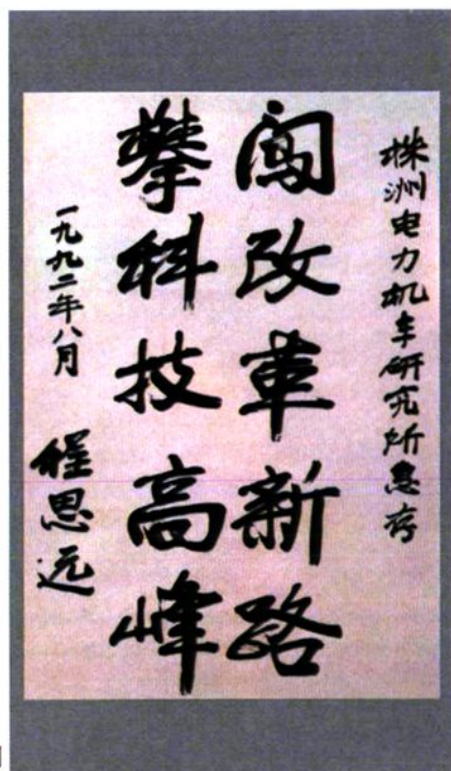 株洲电力机车研究所惠存
闯改革新路
攀科技高峰
一九九二年八月
程思远